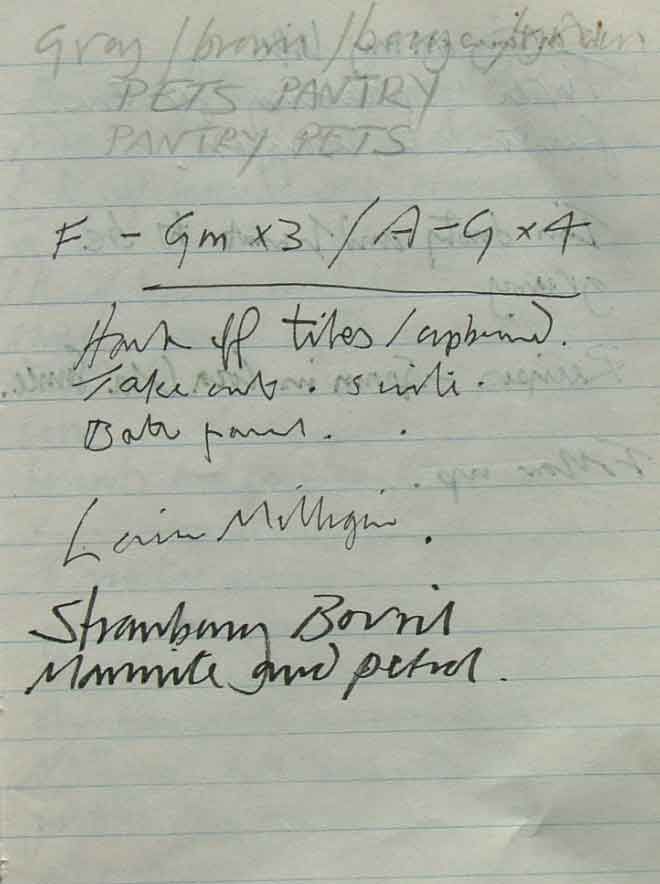 Gray / brown /
PETS PANTRY
PANTRY PETS
F. - Gm x3 / A - G x4
Hack off tiles /
Take out . sink .
Bath panel .
Milligan .
Strawberry Bovril
Marmite and petrol .